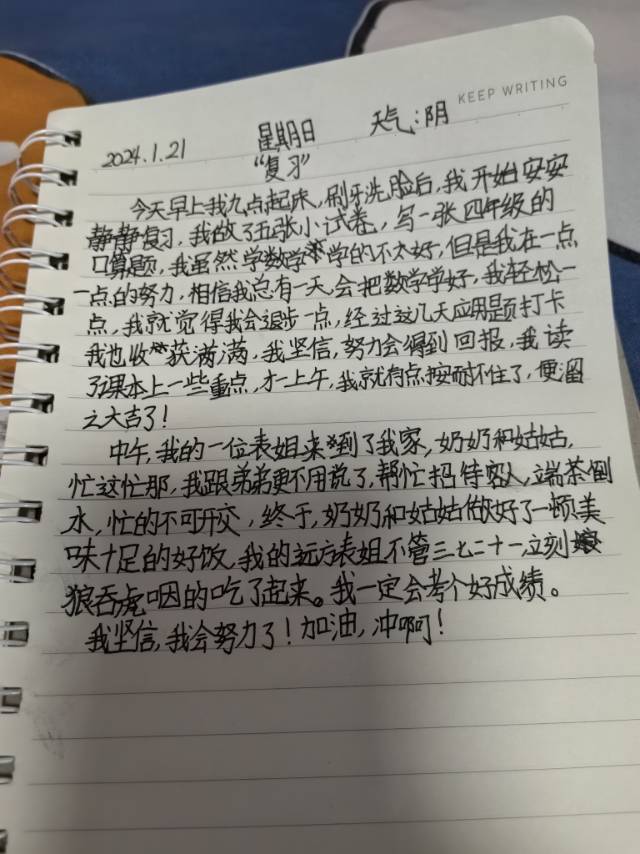 KEEP WRITING
2024.1.21 星期日 天气:阴
“复习”
今天早上我九点起床,刷牙洗脸后,我开始安安
静静复习,我做了五张小试卷,写一张四年级的
口算题,我虽然学数学学的不太好,但是我在一点
一点的努力,相信我总有一天会把数学学好,我轻松一
点,我就觉得我会退步一点,经过这几天应用题打卡
我也收获满满,我坚信,努力会得到回报,我读
了课本上一些重点,才一上午,我就有点按耐不住了,便溜
之大吉了!
中午,我的一位表姐来到了我家,奶奶和姑姑,
忙这忙那,我跟弟弟更不用说了,帮忙招待客人,端茶倒
水,忙的不可开交,终于,奶奶和姑姑做好了一顿美
味十足的好饭,我的远方表姐不管三七二十一,立刻
狼吞虎咽的吃了起来。我一定会考个好成绩。
我坚信,我会努力了!加油,冲啊!